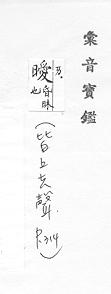 彙音寶鑑
曖 昏昧
也
(皆上去聲. P.314)